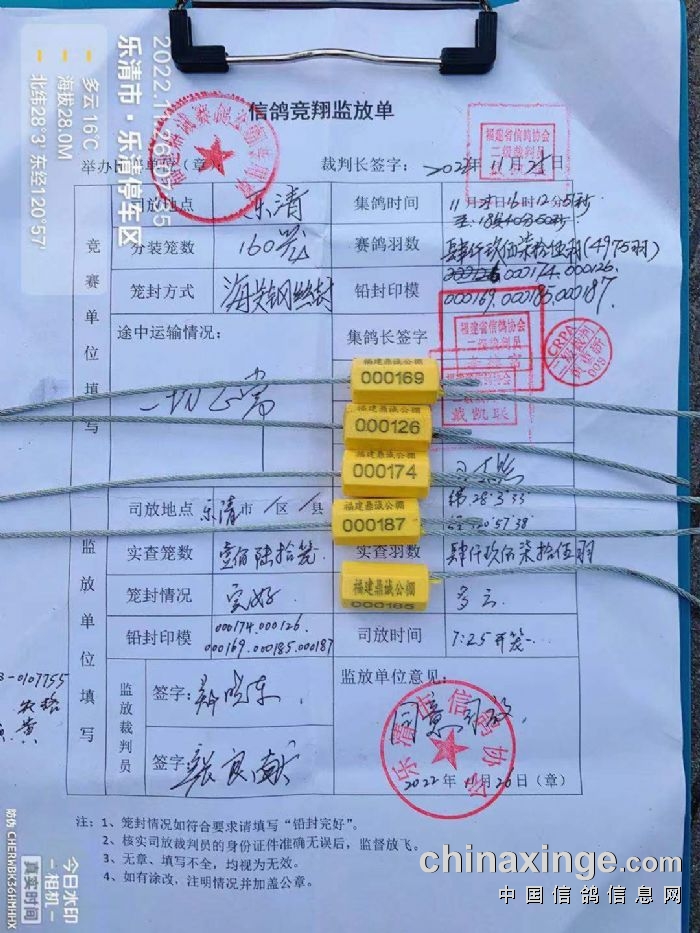 信鸽竞翔监放单
2022.11.26 07:35
乐清市·乐清停车区
多云 16℃
海拔 28.0M
北纬28°3′ 东经120°57′
裁判长签字：
2022年11月25日
福建省信鸽协会
二级裁判员
司放地点
乐清
集鸽时间
分装笼数
160笼
赛鸽羽数
肆仟玖佰柒拾伍羽(4975羽)
笼封方式
铅封印模
000174.000126.
000169.000185.000187.
竞赛单位填写
途中运输情况：
一切正常
集鸽长签字
福建省信鸽协会
二级裁判员
CRPA
戴凯联
福建鼎诚公棚
000169
福建鼎诚公棚
000126
福建鼎诚公棚
000174
福建鼎诚公棚
000187
福建鼎诚公棚
000185
监放单位填写
司放地点
乐清市/区/县
实查笼数
壹佰陆拾笼
实查羽数
肆仟玖佰柒拾伍羽
笼封情况
完好
多云
铅封印模
000174.000126.
000169.000185.000187
司放时间
7:25开笼
监放裁判员
签字：
签字：
监放单位意见：
同意司放
乐清市信鸽协会
2022年11月26日（章）
注：1、笼封情况如符合要求请填写“铅封完好”。
2、核实司放裁判员的身份证件准确无误后，监督放飞。
3、无章、填写不全，均视为无效。
4、如有涂改，注明情况并加盖公章。
今日水印
-相机-
真实时间
防伪 CHERWBK36HMHHX
chinaxinge.com
中国信鸽信息网